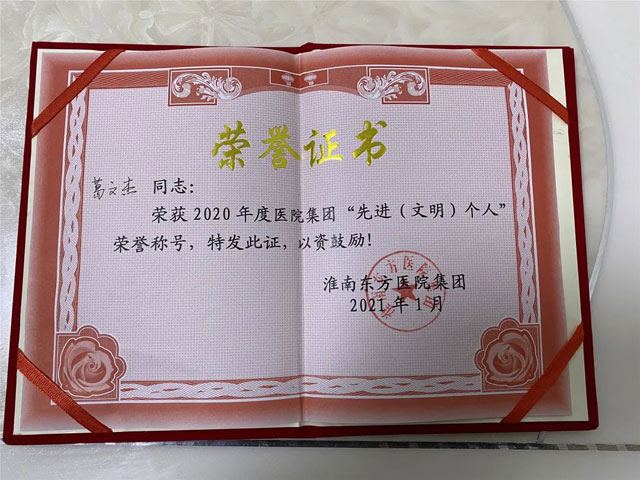 荣誉证书
葛文杰 同志：
荣获2020年度医院集团“先进（文明）个人”
荣誉称号，特发此证，以资鼓励！
淮南东方医院集团
2021年1月
淮南东方医院集团